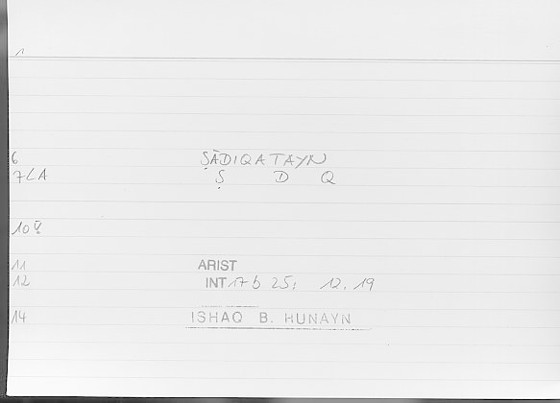 1
6 ṢĀDIQATAYN
7LA Ṣ D Q
10
11 ARIST
12 INT 17 b 25; 12.19
14 ISHAQ B. HUNAYN